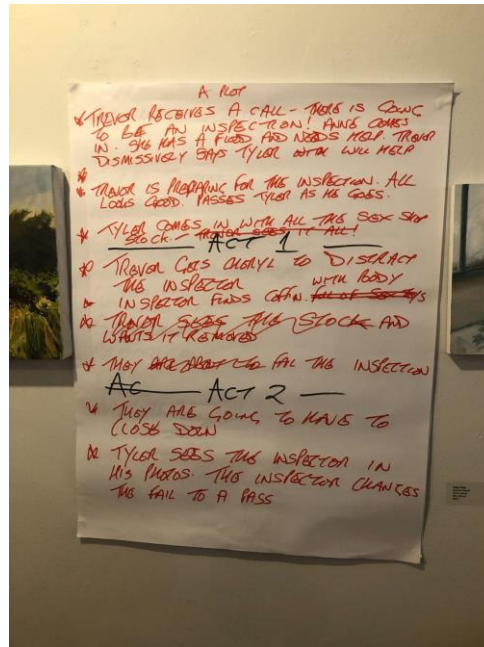 A PLOT
* TREVOR RECEIVES A CALL - THERE IS GOING
TO BE AN INSPECTION! ANNE COMES
IN. SHE HAS A FLOOD AND NEEDS HELP. TREVOR
DISMISSIVELY SAYS TYLER WILL HELP
*
* TREVOR IS PREPARING FOR THE INSPECTION. ALL
LOOKS GOOD. PASSES TYLER AS HE GOES.
* TYLER COMES IN WITH ALL THE SEX SHOP
STOCK. - TREVOR SEES IT ALL!
ACT 1
* TREVOR GETS CHERYL TO DISTRACT
THE INSPECTOR WITH BODY
* INSPECTOR FINDS COFFIN. FULL OF SEX TOYS
* TREVOR SEES THE STOCK AND
WANTS IT REMOVED
* THEY ARE ABOUT TO FAIL THE INSPECTION
AC ACT 2
* THEY ARE GOING TO HAVE TO
CLOSE DOWN
* TYLER SEES THE INSPECTOR IN
HIS PHOTOS. THE INSPECTOR CHANGES
THE FAIL TO A PASS